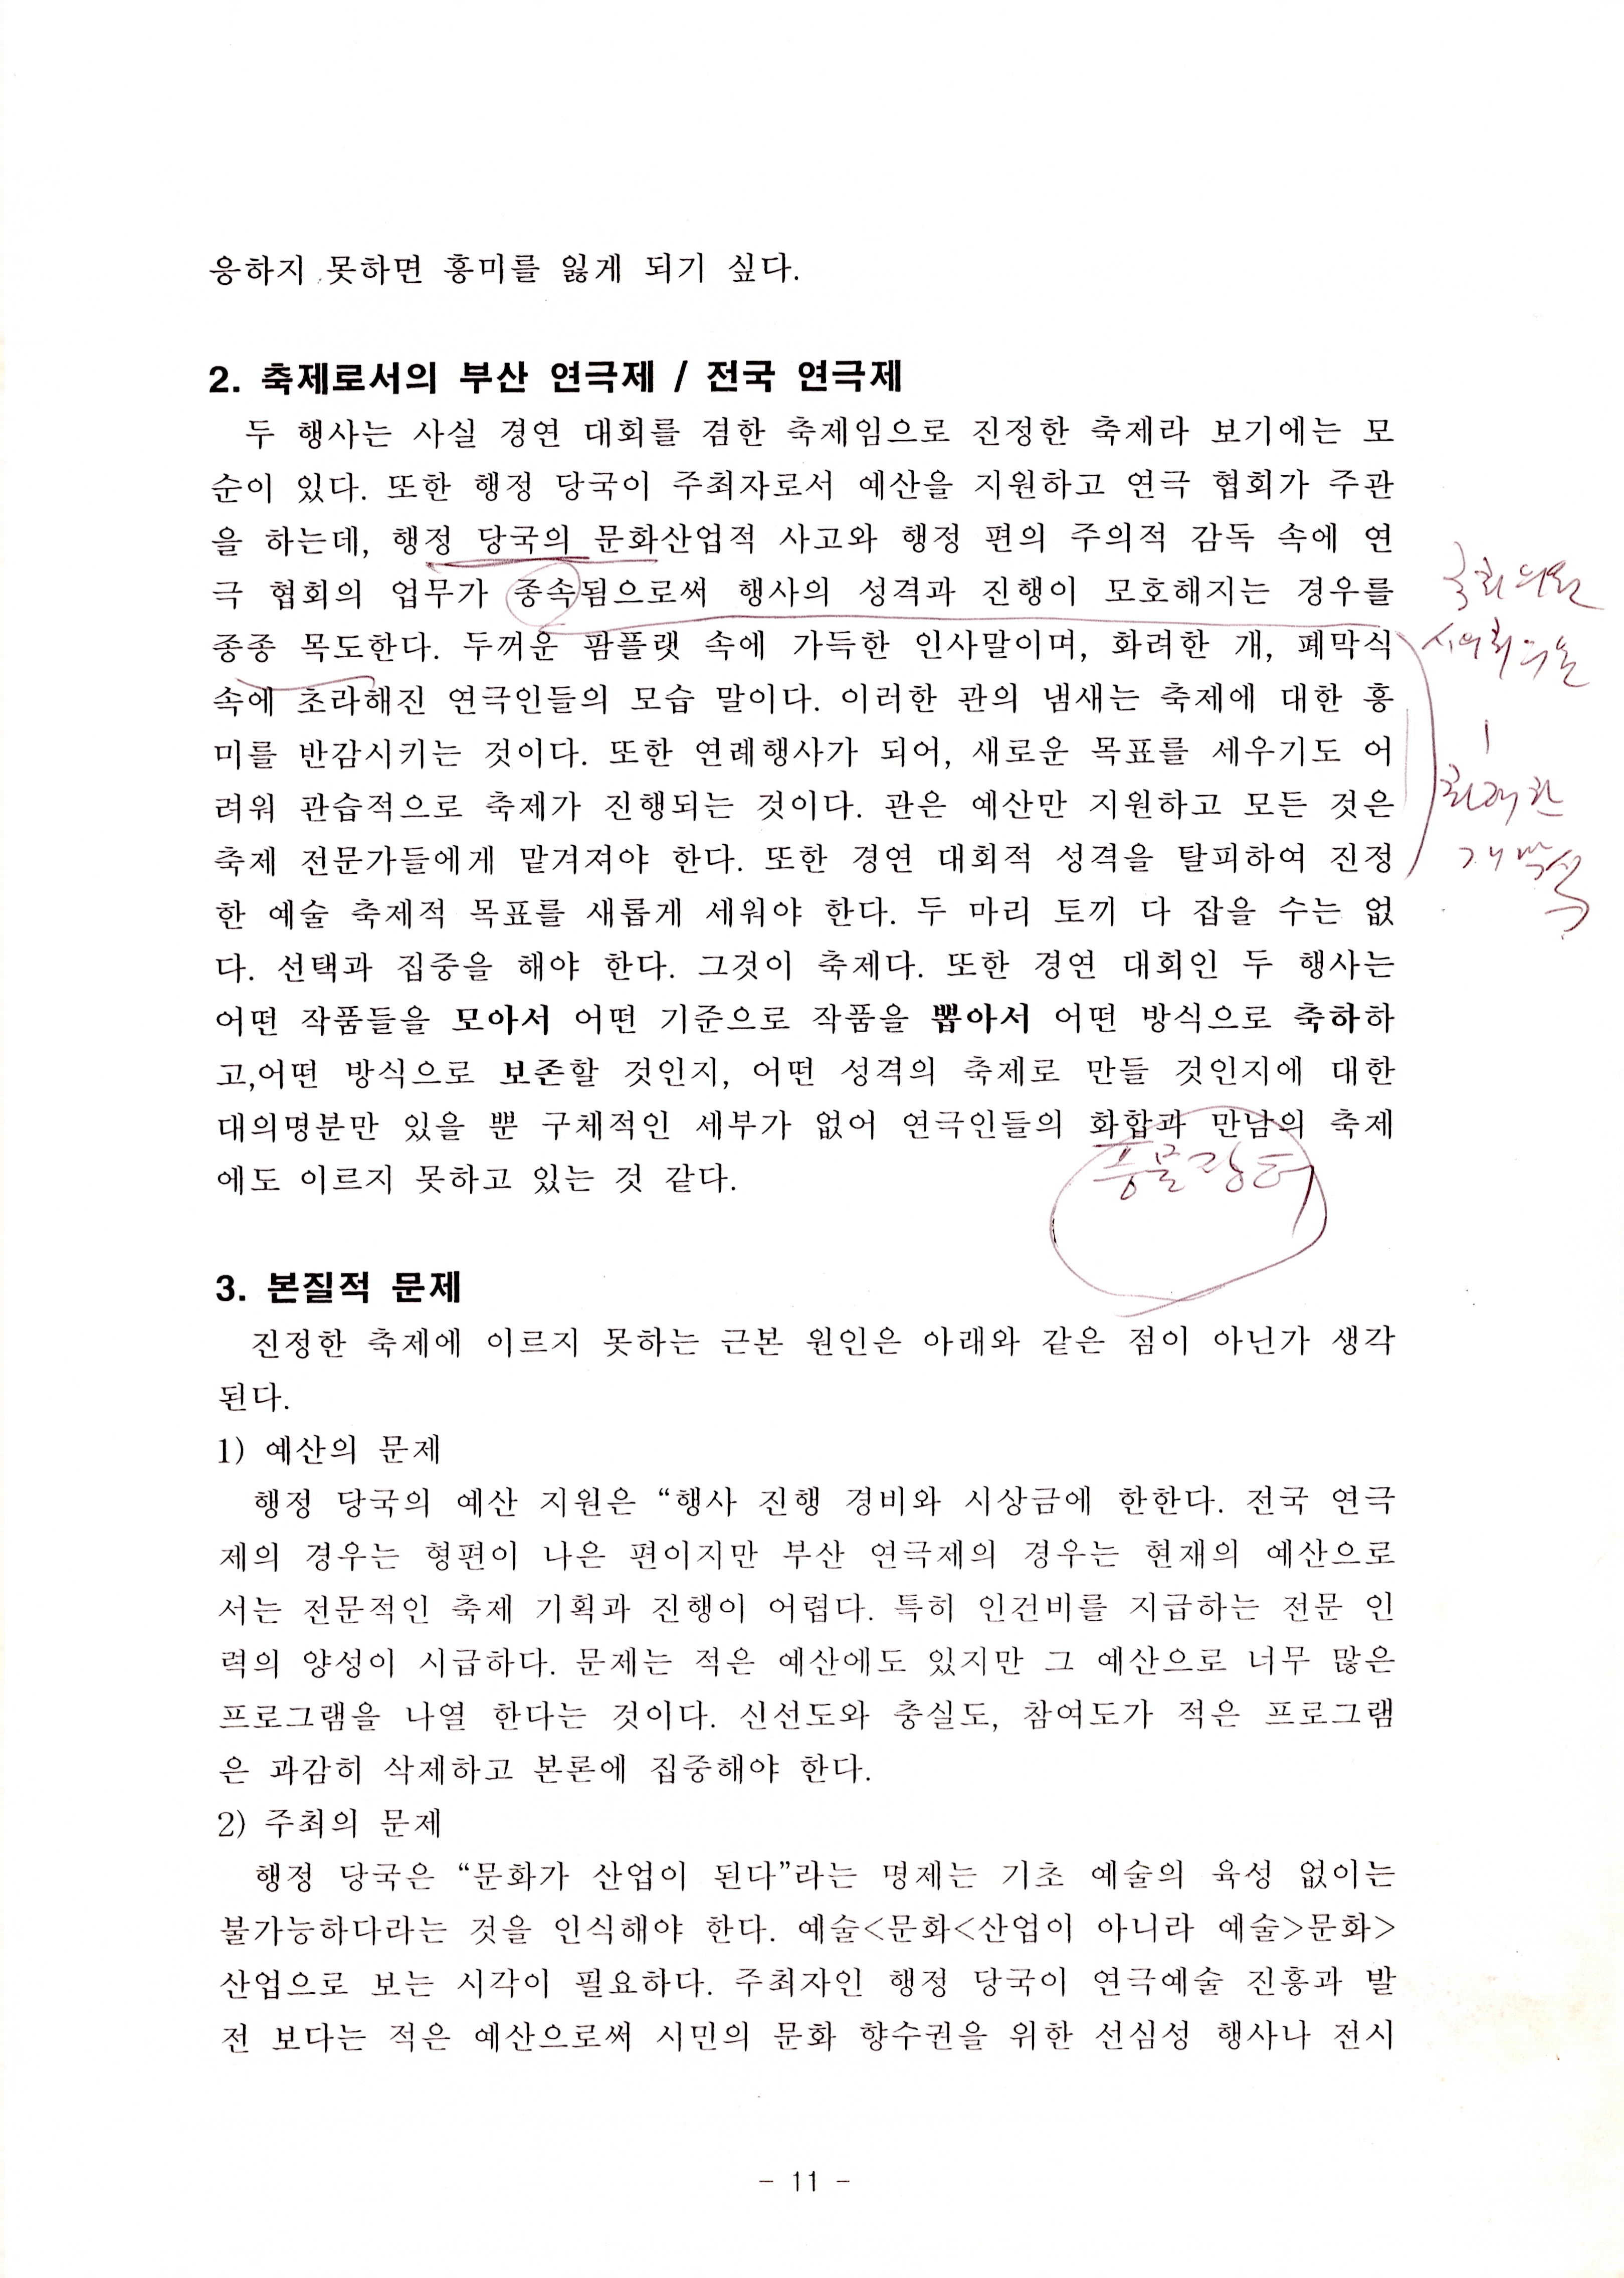 응하지 못하면 흥미를 잃게 되기 싶다.
2. 축제로서의 부산 연극제 / 전국 연극제
두 행사는 사실 경연 대회를 겸한 축제임으로 진정한 축제라 보기에는 모
순이 있다. 또한 행정 당국이 주최자로서 예산을 지원하고 연극 협회가 주관
을 하는데, 행정 당국의 문화산업적 사고와 행정 편의 주의적 감독 속에 연
극 협회의 업무가 종속됨으로써 행사의 성격과 진행이 모호해지는 경우를
국회의원
종종 목도한다. 두꺼운 팜플랫 속에 가득한 인사말이며, 화려한 개, 폐막식
시의회의원
속에 초라해진 연극인들의 모습 말이다. 이러한 관의 냄새는 축제에 대한 흥
미를 반감시키는 것이다. 또한 연례행사가 되어, 새로운 목표를 세우기도 어
려워 관습적으로 축제가 진행되는 것이다. 관은 예산만 지원하고 모든 것은
축제 전문가들에게 맡겨져야 한다. 또한 경연 대회적 성격을 탈피하여 진정
개막식
한 예술 축제적 목표를 새롭게 세워야 한다. 두 마리 토끼 다 잡을 수는 없
다. 선택과 집중을 해야 한다. 그것이 축제다. 또한 경연 대회인 두 행사는
어떤 작품들을 모아서 어떤 기준으로 작품을 뽑아서 어떤 방식으로 축하하
고,어떤 방식으로 보존할 것인지, 어떤 성격의 축제로 만들 것인지에 대한
대의명분만 있을 뿐 구체적인 세부가 없어 연극인들의 화합과 만남의 축제
에도 이르지 못하고 있는 것 같다.
풍물장터
3. 본질적 문제
진정한 축제에 이르지 못하는 근본 원인은 아래와 같은 점이 아닌가 생각
된다.
1) 예산의 문제
행정 당국의 예산 지원은 “행사 진행 경비와 시상금에 한한다. 전국 연극
제의 경우는 형편이 나은 편이지만 부산 연극제의 경우는 현재의 예산으로
서는 전문적인 축제 기획과 진행이 어렵다. 특히 인건비를 지급하는 전문 인
력의 양성이 시급하다. 문제는 적은 예산에도 있지만 그 예산으로 너무 많은
프로그램을 나열 한다는 것이다. 신선도와 충실도, 참여도가 적은 프로그램
은 과감히 삭제하고 본론에 집중해야 한다.
2) 주최의 문제
행정 당국은 “문화가 산업이 된다”라는 명제는 기초 예술의 육성 없이는
불가능하다라는 것을 인식해야 한다. 예술<문화<산업이 아니라 예술>문화>
산업으로 보는 시각이 필요하다. 주최자인 행정 당국이 연극예술 진흥과 발
전 보다는 적은 예산으로써 시민의 문화 향수권을 위한 선심성 행사나 전시
- 11 -